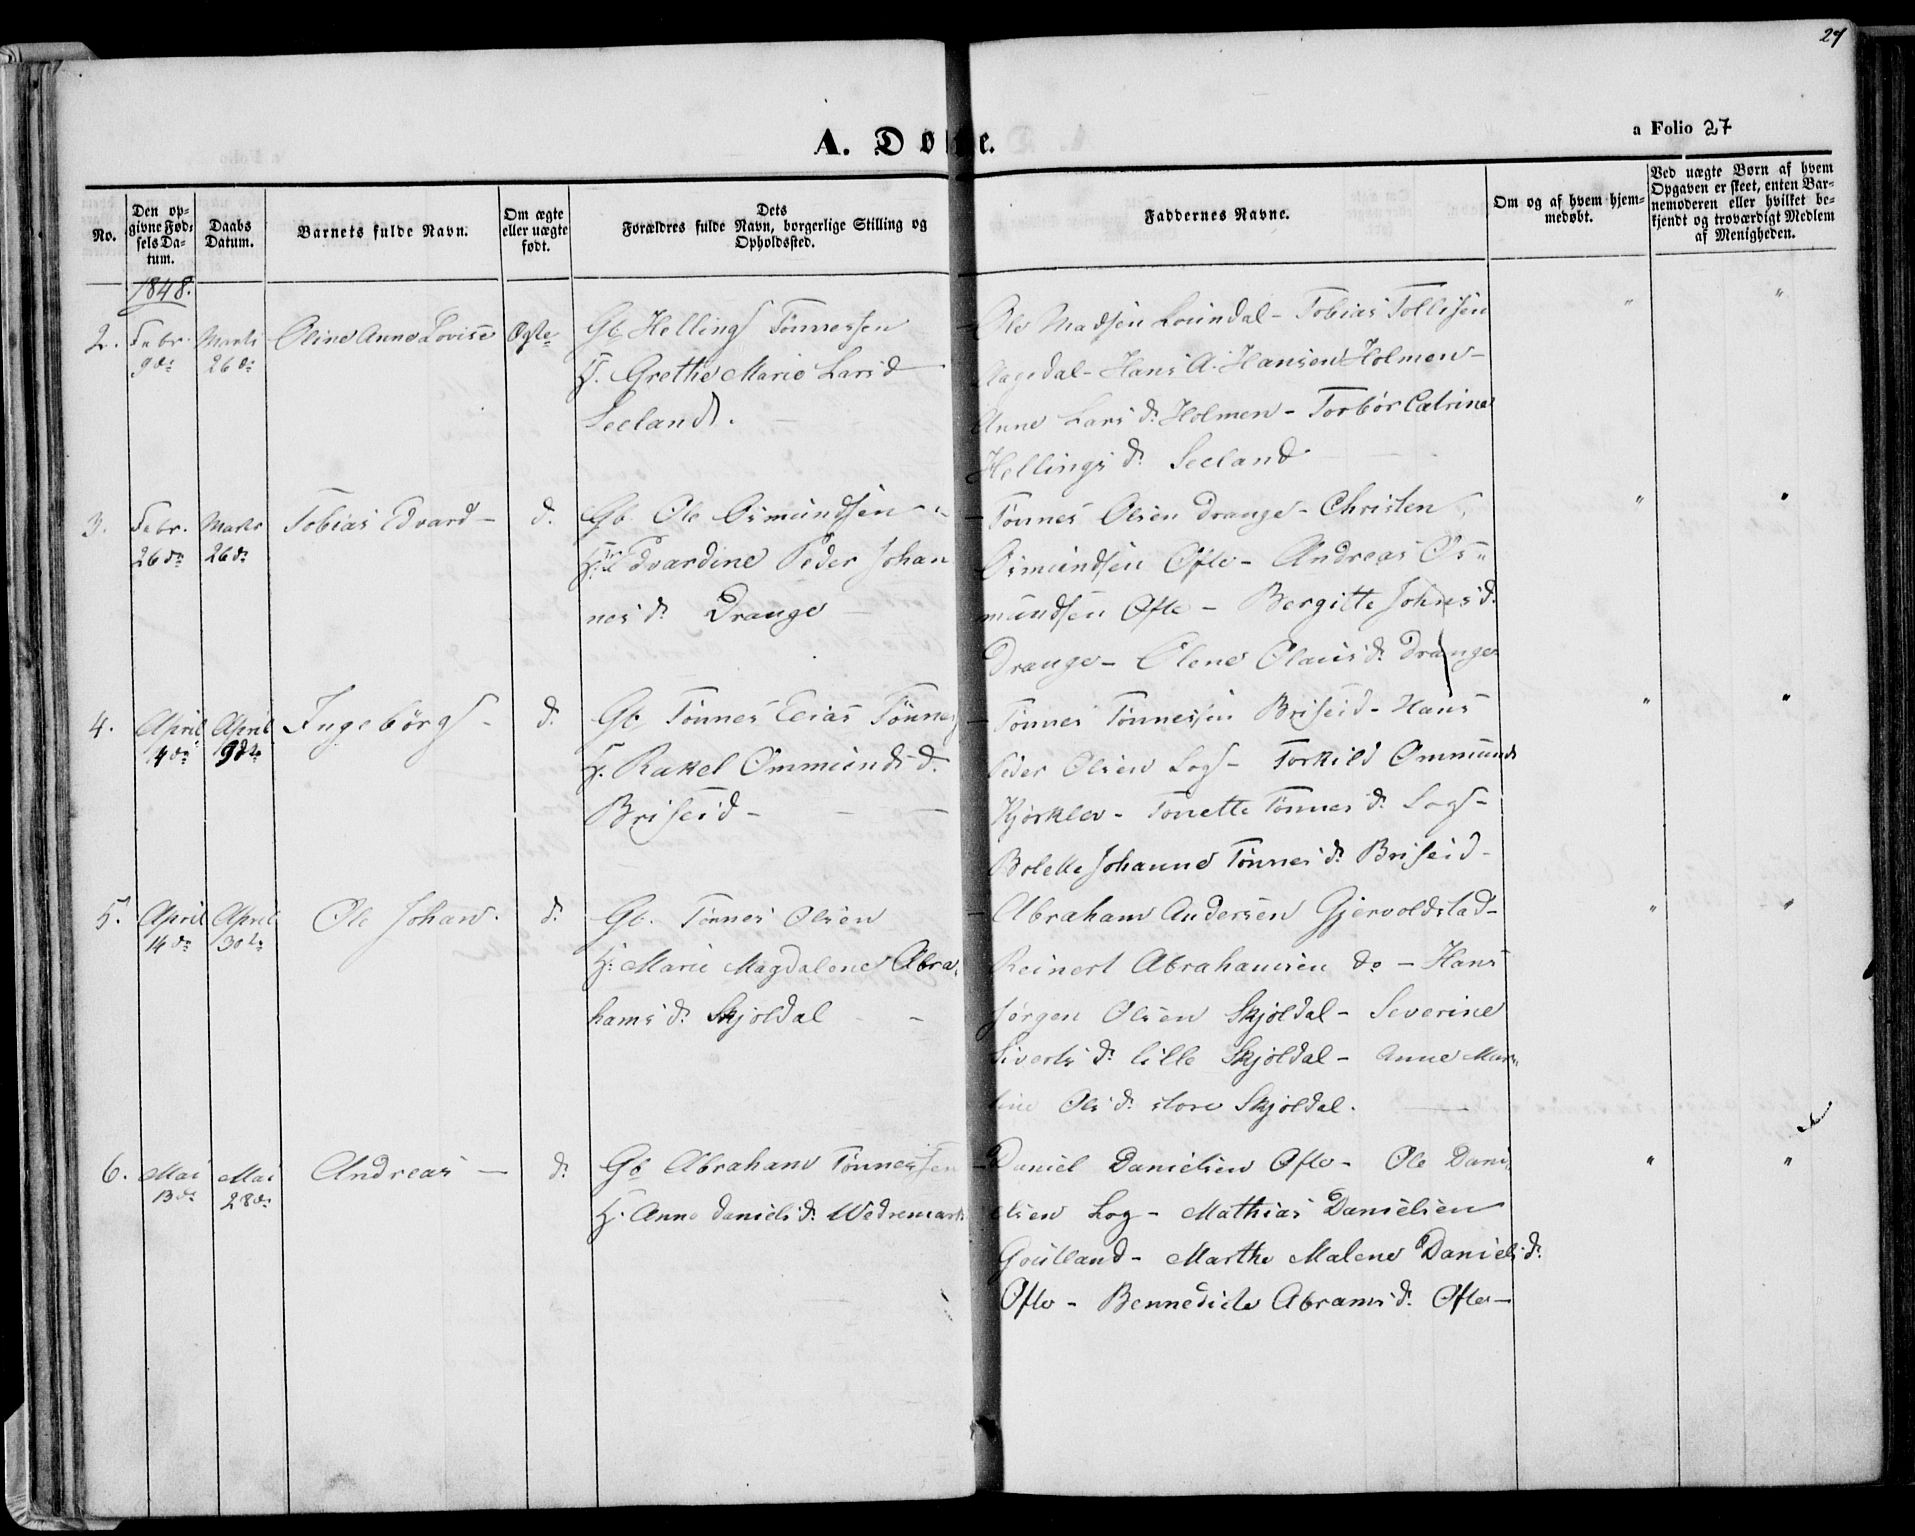 27
A. Døbte.
a Folio 27
No.
Den opgivne Fødsels Datum.
Daabs Datum.
Barnets fulde Navn.
Om ægte eller uægte født.
Dets Forældres fulde Navn, borgerlige Stilling og Opholdssted.
Faddernes Navne.
Om og af hvem hjemmedøbt.
Ved uægte Børn af hvem Opgaven er skeet, enten Barnemoderen eller hvilket bekjendt og troværdigt Medlem af Menigheden.
1848.
2. Febr. 9de Marts 26de Oline Anne Lovise Ægte Gb. Helling Tønnessen
H. Grethe Marie Lars d
Seeland.
Ole Madsen Londal - Tobias Tollisen
Aagedal - Hans A. Hansen Holmen -
Anne Lars d. Holmen - Torbør Catrine
Hellings d. Seeland
" "
3. Febr. 26de Marts 26de Tobias Edvard - d. Gb. Ole Osmundsen
H. Edvardine Peder Johan
nes d. Drange -
Tønnes Olsen Drange - Christen
Osmundsen Ofte - Andreas Os=
mundsen Ofte - Bergitte Johns d.
Drange - Olene Olaus d. Drange
" "
4. April 4de April 9de Ingebørg - d. Gb. Tønnes Elias Tønnes
H. Rakel Ommunds d.
Briseid -
Tønnes Tønnessen Briseid - Hans
Peder Olsen Log - Torkild Ommunds
Kjørklev - Tonette Tønnes d. Log -
Bolette Johanne Tønnes d. Briseid -
" "
5. April 14de April 30te Ole Johan. d. Gb. Tønnes Olsen
H. Marie Magdalene Abra,
hams d. Skjoldal - -
Abraham Andersen Gjervoldstad -
Reinert Abrahamsen do - Hans
Jørgen Olsen Skjoldal - Severine
Siverts d. lille Skjoldal - Anne Mar=
tine Ols d. store Skjoldal.
" "
6. Mai 13de Mai 28de Andreas - d. Gb Abraham Tønnessen
H. Anne Daniels d. Wedremark
Daniel Danielsen Ofte - Ole Dani,
elsen Log - Mathias Danielsen
Goutland - Marthe Malene Daniels d.
Ofte - Bennedicte Abrams d. Ofte -
" "